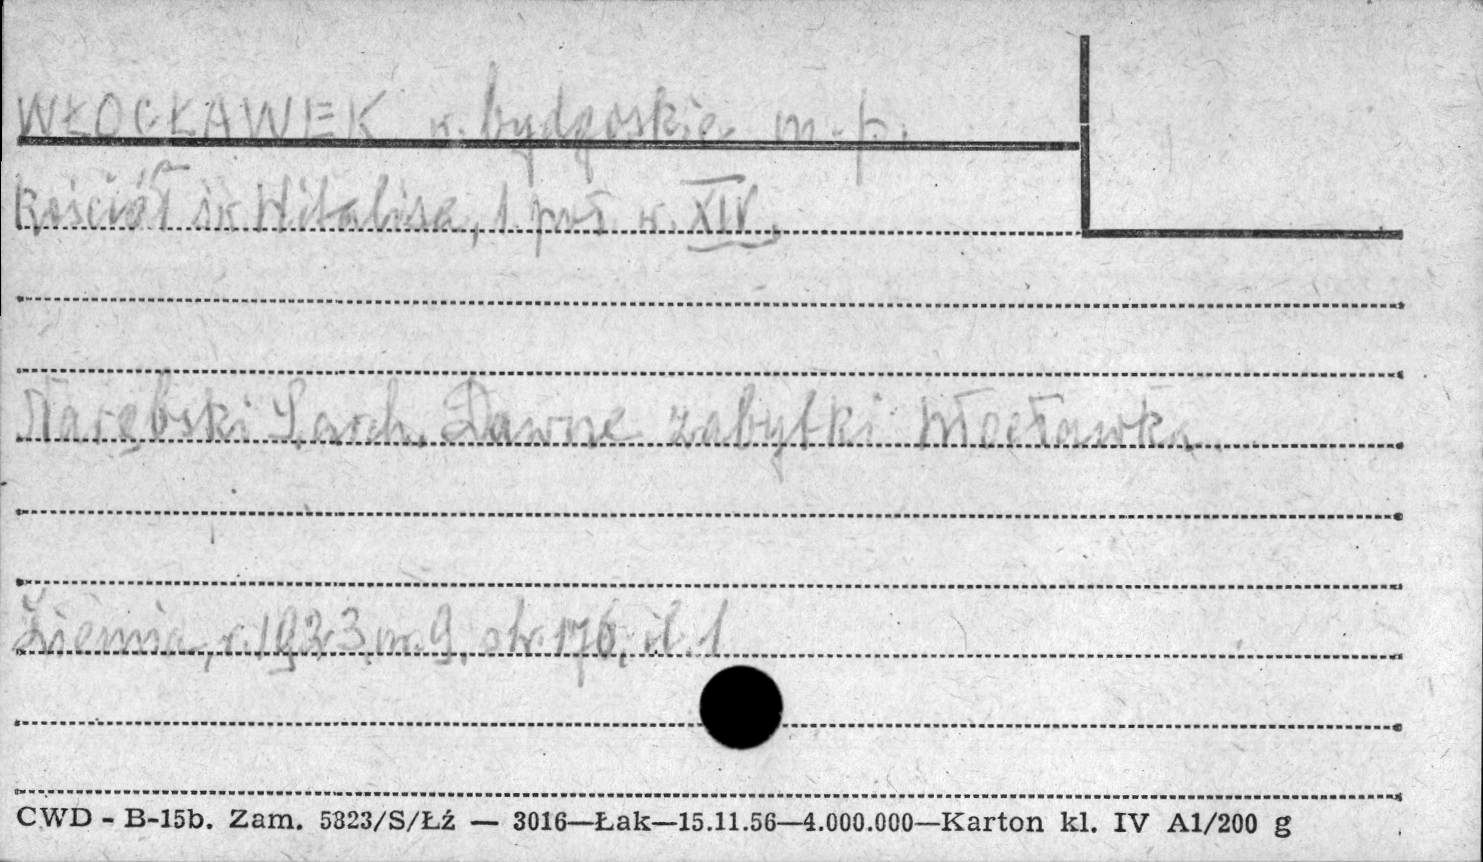 WŁOCŁAWEK w. bydgoskie m.p.
Kościół św Witalisa, 1. poł. w. XIV.
Narębski S. arch. Dawne zabytki Włocławka.
Ziemia, r. 1923, nr. 9, str. 176, il. 1
CWD - B-15b. Zam. 5823/S/Łź — 3016—Łak—15.11.56—4.000.000—Karton kl. IV A1/200 g